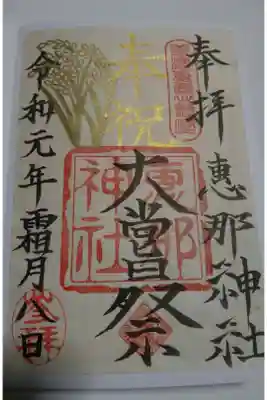 奉拝
惠那神社
奉祝
大嘗祭
惠那
神社
令和元年霜月八日
参拝